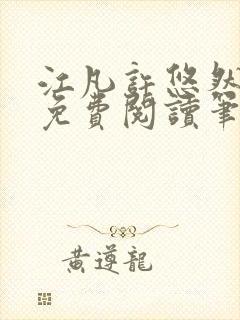 江凡許悠然
免費閱讀筆
黄遵龍